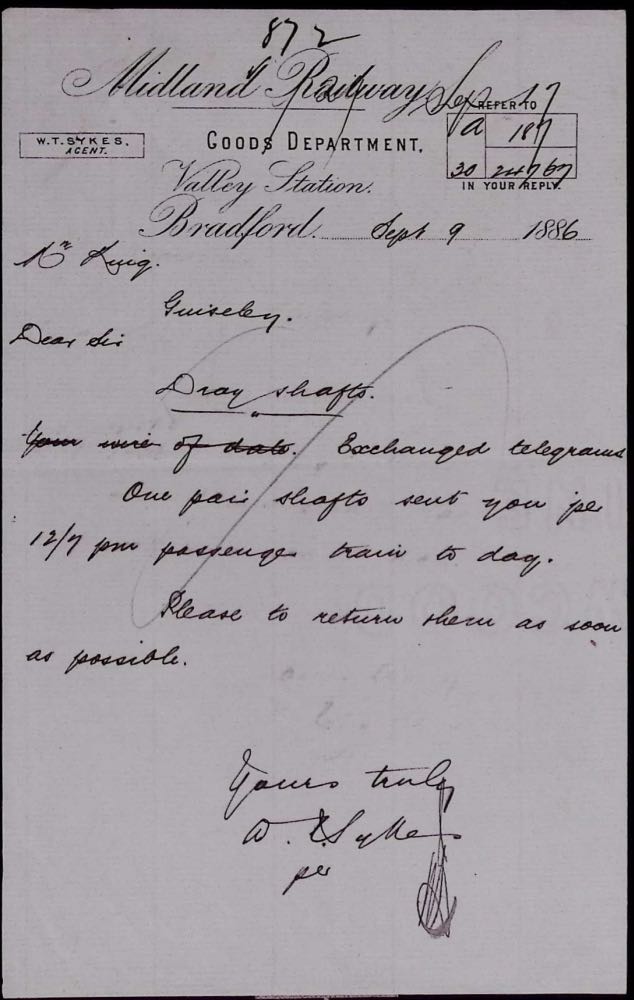 872
Midland Railway
REFER TO
a 187
30 24767
IN YOUR REPLY.
W.T. SYKES,
AGENT.
GOODS DEPARTMENT,
Valley Station.
Bradford. Sept 9 1886
Mr King.
Guiseley.
Dear Sir
Dray shafts.
Your wire of date. Exchanged telegrams
One pair shafts sent you per
12/7 pm passenger train to day.
Please to return them as soon
as possible.
Yours truly
W. T. Sykes
per